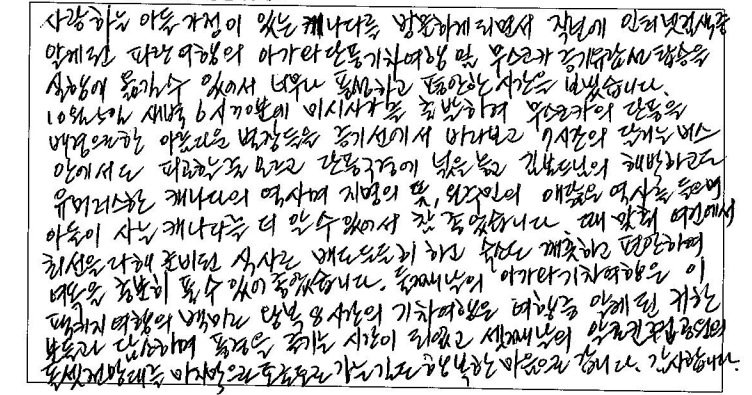 사랑하는 아들 가정이 있는 캐나다를 방문하게 되면서 작년에 인터넷검색중
알게된 파란여행의 아가와단풍기차여행 및 무스코카 증기유람선 탑승을
실행에 옮길수 있어서 너무나 풍성하고 편안한 시간을 보냈습니다.
10월 새벽 6시30분에 미시사가를 출발하여 무스코카의 단풍을
배경으로한 아름다운 별장들을 증기선에서 바라보고 7시간의 달리는 버스
안에서도 피곤한줄 모르고 단풍구경에 넋을 놓고 해박하고도
유머러스한 캐나다의 역사며 지명의 뜻, 원주민의 애닲은 역사를 들으며
아들이 사는 캐나다를 더 알수있어서 참 좋았습니다. 때 맞춰 여건에서
최선을 다해 준비된 식사로 배도 든든히 하고 숙소도 깨끗하고 편안하여
여독을 충분히 풀 수 있어 좋았습니다. 둘째날의 아가와기차여행은 이
패키지여행의 백미로 왕복 8시간의 기차여행은 여행중 알게 된 귀한
분들과 담소하며 풍경을 즐기는 시간이 되었고 셋째날의 알곤퀸주립공원의
돌셋전망대를 마지막으로 토론토로 가는길도 행복한 마음으로 갑니다. 감사합니다.